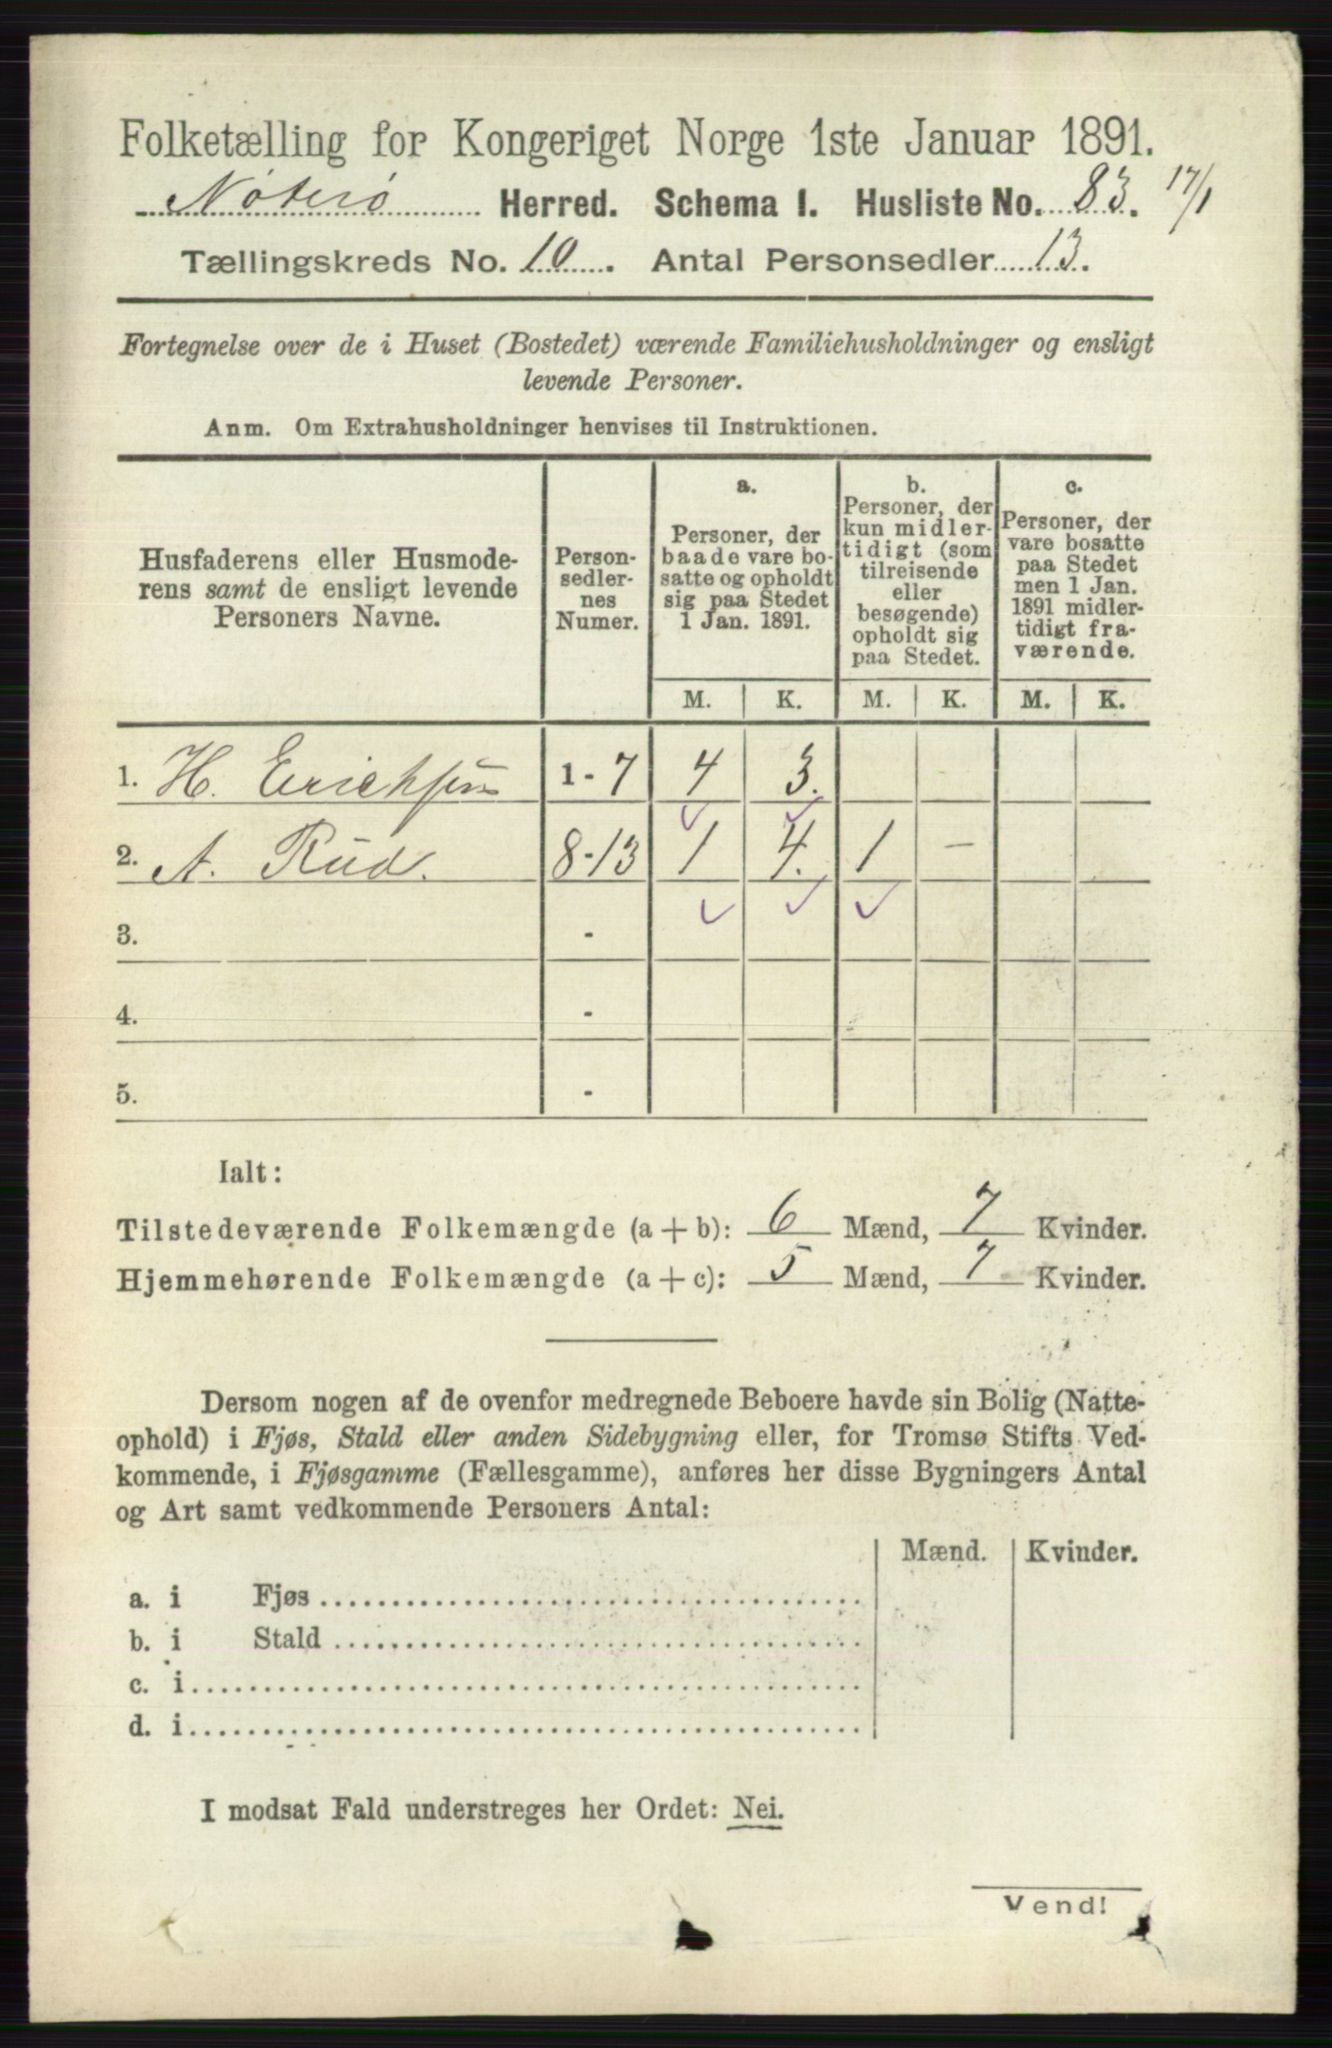 Folketælling for Kongeriget Norge 1ste Januar 1891.
Nøterø Herred. Schema I. Husliste No. 83. 17/1
Tællingskreds No. 10. Antal Personsedler 13.
Fortegnelse over de i Huset (Bostedet) værende Familiehusholdninger og ensligt
levende Personer.
Anm. Om Extrahusholdninger henvises til Instruktionen.
Husfaderens eller Husmode-
rens samt de ensligt levende
Personers Navne.
Person-
sedler-
nes
Numer.
a.
Personer, der
baade vare bo-
satte og opholdt
sig paa Stedet
1 Jan. 1891.
b.
Personer, der
kun midler-
tidigt (som
tilreisende
eller
besøgende)
opholdt sig
paa Stedet.
c.
Personer, der
vare bosatte
paa Stedet
men 1 Jan.
1891 midler-
tidigt fra-
værende.
M. K. M. K. M. K.
1. H. Erichsen 1 - 7 4 3.
2. A. Rud. 8-13 1 4. 1 -
3. -
4. -
5. -
Ialt:
Tilstedeværende Folkemængde (a + b): 6 Mænd, 7 Kvinder.
Hjemmehørende Folkemængde (a + c): 5 Mænd, 7 Kvinder.
Dersom nogen af de ovenfor medregnede Beboere havde sin Bolig (Natte-
ophold) i Fjøs, Stald eller anden Sidebygning eller, for Tromsø Stifts Ved-
kommende, i Fjøsgamme (Fællesgamme), anføres her disse Bygningers Antal
og Art samt vedkommende Personers Antal:
Mænd. Kvinder.
a. i Fjøs
b. i Stald
c. i
d. i
I modsat Fald understreges her Ordet: Nei.
Vend!